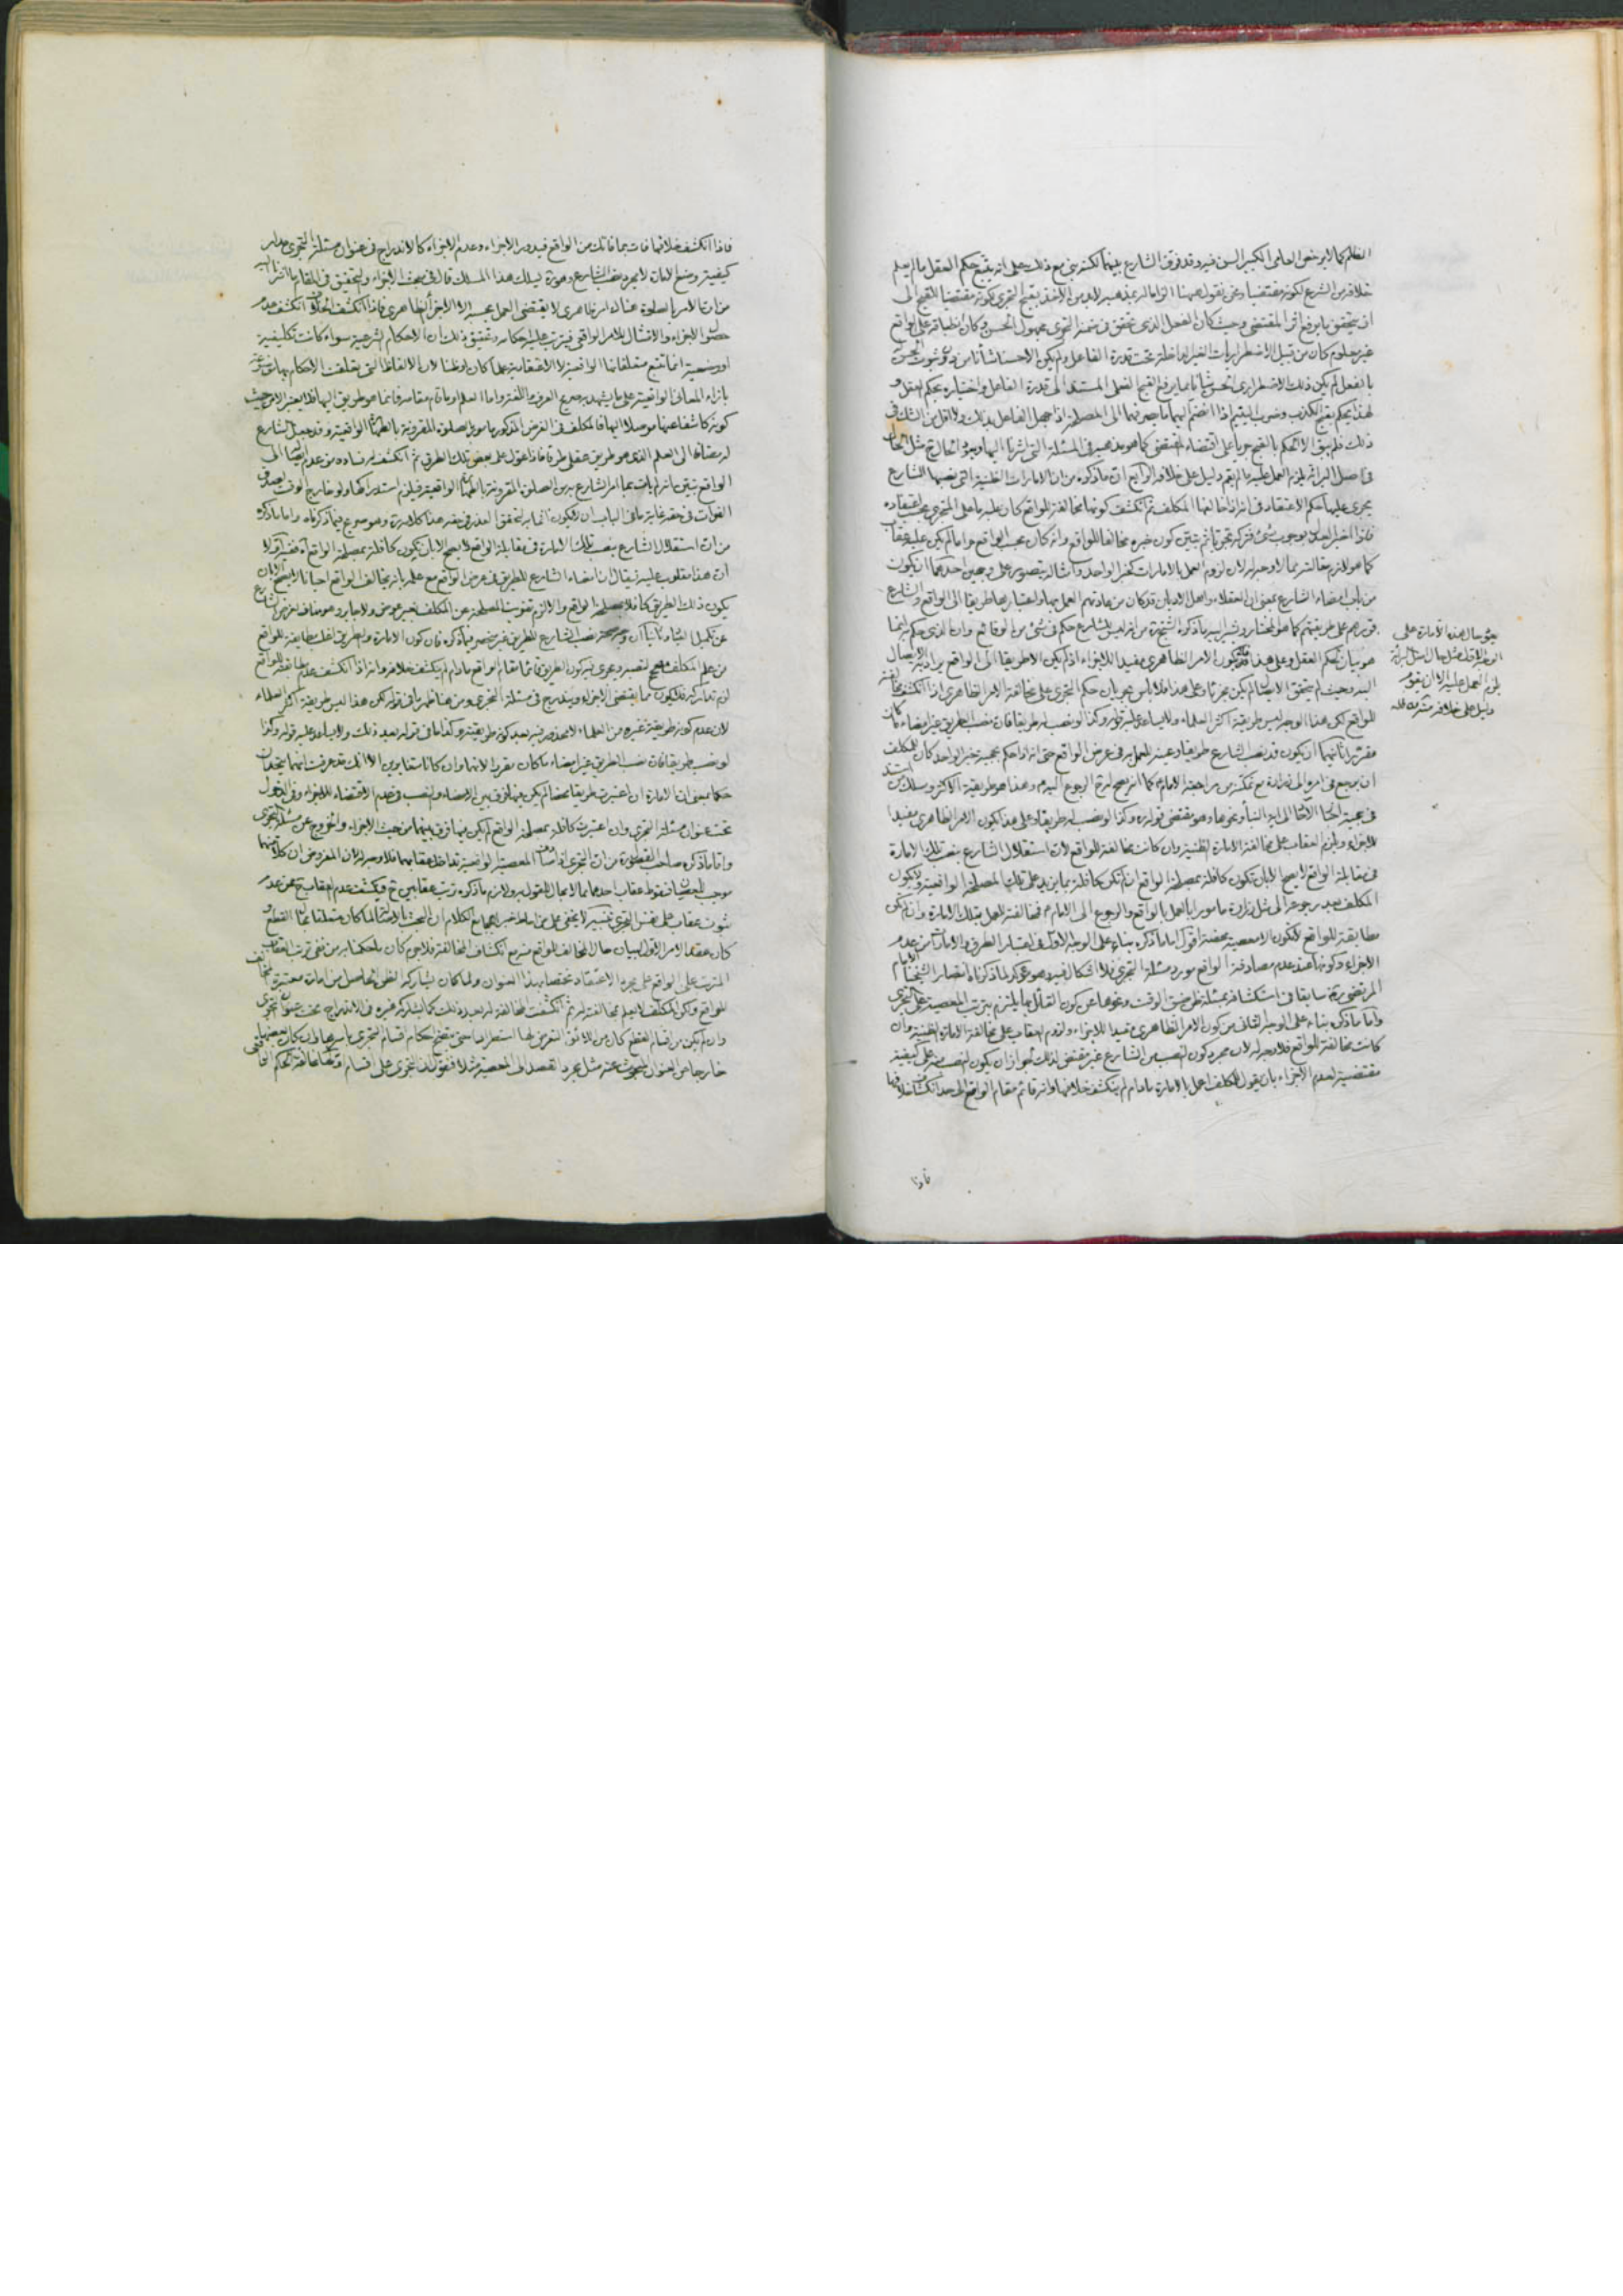 الظلم كما لا يرخص العامى الكبير السن فيه وقد فرق الشارع بينهما لكنه بنى مع ذلك على انه يتبع حكم العقل ما لم يعلم
خلافه من الشرع لكونه مقتضيا ونحن نقول ههنا انه لا بد من الاخذ بقبح التجرى لكونه مقتضيا للقبح الى
ان يتحقق ما يرفع اثر المقتضى وحيث كان الفعل الذى تحقق فى ضمنه التجرى مجهول الحسن وكان انطباقه على واقع
غير معلوم كان من قبيل الاضطراريات الغير الداخلة تحت قدرة الفاعل ولم يكن الاحسان ناشئا من
بالفعل لم يكن ذلك الاضطرارى مما يرفع القبح الفعلى المستند الى قدرة الفاعل واختياره بحكم العقل و
لهذا يحكم بقبح الكذب وضرب اليتيم اذا انضم اليهما ما يصرفهما الى المصلحة اذا جهل الفاعل بذلك ولا اقل من الشك فى
ذلك فلم يبق الا الحكم بالقبح جريا على اقتضاء المقتضى كما هو مذهبه فى المسئلة التى اشرنا اليها
فى اصل البرائة يلزم العمل عليه ما لم يقم دليل على خلافه الرابع ان ما ذكره من ان الامارات الظنية التى نصبها الشارع
يجرى عليها حكم الاعتقاد فى انه اذا خالفها المكلف ثم انكشف كونها مخالفة للواقع كان عليه ما على المتجرى بحسب اعتقاده
فاذا اخبر العدل بوجوب شئ فتركه ثم تبين كون خبره مخالفا للواقع وانه كان بحسب الواقع حراما لم يكن عليه عقاب
كما هو لازم مقالته مما لا وجه له لان لزوم العمل بالامارات كخبر الواحد وامثاله يتصور على وجهين احدهما ان يكون
من باب امضاء الشارع بمعنى ان العقلاء واهل الاديان قد كان من عادتهم العمل بها واعتبارها طريقا الى الواقع والشارع
قررهم على طريقتهم كما هو المختار ويشير اليه ما ذكره الشيخ من انه ليس للشارع حكم فى شئ من الوقائع وان الذى حكم به انما
هو بيان لحكم العقل وعلى هذا فلا يكون الامر الظاهرى مفيدا للاجزاء اذ لم يكن الا طريقا الى الواقع يراد به الايصال
اليه وحيث لم يتحقق الايصال لم يكن مجزئا وعلى هذا فلا باس بجريان حكم التجرى على مخالفة الامر الظاهرى اذا انكشف مخالفته
للواقع لكن هذا الوجه ليس طريقة اكثر العلماء ولا يساعد عليه قوله وكذا لو نصب له طريقا فان نصب الطريق غير امضاء ما كان
مقررا ثانيهما ان يكون قد نصب الشارع طريقا وعينه للعمل به فى عرض الواقع حتى انه اذا حكم بحجية خبر الواحد كان للمكلف
ان يرجع فى امره الى زرارة مع تمكنه من مراجعة الامام كما انه يصح له الرجوع اليه وهذا هو طريقة الاكثر وسلك من استند
فى حجية الخبر الى اية النبأ ونحوها وهو مقتضى قوله ره وكذا لو نصب له طريقا وعلى هذا يكون الامر الظاهرى مفيدا
للاجزاء ويلزم العقاب على مخالفة الامارة الظنية وان كانت مخالفة للواقع لان استقلال الشارع بنصب تلك الامارة
فى مقابلة الواقع لا يصح الا بان تكون كافلة بمصلحة الواقع ان لم تكن كافلة بما يزيد على تلك المصلحة الواقعية ويكون
المكلف بعد رجوعه الى مثل زرارة مامورا بالعمل بالواقع والرجوع الى الامام فمخالفته للعمل بتلك الامارة وان لم تكن
مطابقة للواقع لا تكون الا معصية محضة اقول اما ما ذكره بناء على الوجه الاول فى اعتبار الطرق والامارات من عدم
الاجزاء وكونها عند عدم مصادفة الواقع مورد مسئلة التجرى فلا اشكال فيه وهو مؤكد لما ذكرناه
المرتضى ره سابقا فى استكشافه بمسئلة ظن ضيق الوقت ونحوها من كون القائل بها يلتزم بترتب المعصية على التجرى
واما ما ذكره بناء على الوجه الثانى من كون الامر الظاهرى مفيدا للاجزاء ولزوم العقاب على مخالفة الامارة الظنية وان
كانت مخالفة للواقع فلا وجه له لان مجرد كون النصب من الشارع غير مقتض لذلك لجواز ان يكون النصب منه على كيفية
مقتضية لعدم الاجزاء بان يقول للمكلف اعمل بالامارة ما دام لم ينكشف خلافها وانه قائم مقام الواقع الى حد انكشاف خلافها
فاذا
يعنى حال هذه الامارة على
الوجه الاول مثل حال اصل البرائة
يلزم العمل عليه الا ان يقوم
دليل على خلافه منه
فاذا انكشف خلافها فات بما فاتك من الواقع فيدور الاجزاء وعدم الاجزاء كالاندراج فى عنوان مسئلة التجرى مدار
كيفية وضع الامارة لا مجرد نصب الشارع وهو ره يسلك هذا المسلك قال فى مبحث الاجزاء والتحقيق فى المقام
من ان الامر بالصلوة هناك امر ظاهرى لا يقتضى العمل بحسبه الا الاجزاء الظاهرى فاذا انكشف الخلاف انكشف عدم
حصول الاجزاء والامتثال للامر الواقعى فيترتب عليه احكامه وتحقيق ذلك ان الاحكام الشرعية سواء كانت تكليفية
او وضعية انما تتبع متعلقاتها الواقعية لا الاعتقادية علما كان او ظنا لان الالفاظ التى يتعلق الاحكام بها موضوعة
بازاء المعانى الواقعية على ما يشهد به صريح العرف واللغة واما العلم او ما قام مقامه فانما هو طريق اليها فلا يعتبر الا من حيث
كونه كاشفا عنها موصلا اليها فالمكلف فى الفرض المذكور مامور بالصلوة المقرونة بالطهارة الواقعية وقد جعل الشارع
له مضافا الى العلم الذى هو طريق عقلى طرقا فاذا عول على بعض تلك الطرق ثم انكشف له فساده من عدم ايصاله الى
الواقع تبين انه لم يات بما امر الشارع به من الصلوة المقرونة بالطهارة الواقعية فيلزم استدراكها ولو خارج الوقت لصدق
الفوات فى حقه غاية ما فى الباب ان لا يكون اثما به لتحقق العذر فى حقه هذا كلامه ره وهو موضح لما ذكرناه واما ما ذكره
من ان استقلال الشارع بنصب تلك الامارة فى مقابلة الواقع لا يصح الا بان تكون كافلة بمصلحة الواقع اه ففيه اولا
ان هذا مقلوب عليه فيقال ان امضاء الشارع للطريق فى عرض الواقع مع علمه بانه يخالف الواقع احيانا لا يصح الا بان
يكون ذلك الطريق كافلا بمصلحة الواقع والا لزم تفويت المصلحة عن المكلف بغير عوض ولا جابر وهو مناف لغرض الشارع
عن تكميل العباد وثانيا ان وجه صحة نصب الشارع للطريق غير منحصر فيما ذكره فان كون الامارة والطريق اغلب مطابقة للواقع
من علم المكلف مصحح لنصبه ودعوى كون الطريق قائما مقام الواقع ما دام لم ينكشف خلافه وانه اذا انكشف عدم مطابقته للواقع
لزم تداركه فلا يكون مما يقتضى الاجزاء ويندرج فى مسئلة التجرى ومن هنا ظهر ما فى قوله لكن هذا ليس طريقة اكثر العلماء
لان عدم كونه طريقة غيره من العلماء لا محذور فيه بعد كونه طريقته وكذا ما فى قوله بعد ذلك ولا يساعد عليه قوله وكذا
لو نصب طريقا فان نصب الطريق غير امضاء ما كان مقررا لانهما وان كانا متغايرين الا انك قد عرفت انهما متحدان
حكما بمعنى ان الامارة ان اعتبرت طريقا محضا لم يكن بينهما فرق بين الامضاء والنصب فى عدم الاقتضاء للاجزاء وفى الدخول
تحت عنوان مسئلة التجرى وان اعتبرت كافلة بمصلحة الواقع لم يكن بينهما فرق بينهما من حيث الاجزاء والخروج عن مسئلة التجرى
واما ما ذكره صاحب الفصول ره من ان التجرى اذا صادف المعصية الواقعية تداخل عقابهما فلا وجه له لان المفروض ان كلا منهما
موجب للعصيان فسقوط عقاب احدهما بلا مجال للقول به ولازم ما ذكره ترتب عقابين ح ويكشف عدم العقاب ح عن عدم
ثبوت عقاب على نفس التجرى تنبيه لا يخفى على من احاط خبرا بمجامع الكلام ان البحث لما كان متعلقا بالقطع و
كان عقد الامر الاول لبيان حال المخالف للواقع منه مع انكشاف المخالفة فلا جرم كان ما حكمنا به من نفى ترتب العقاب
المترتب على الواقع على مجرد الاعتقاد مختصا بهذا العنوان ولما كان يشاركه الظن الحاصل من امارة معتبرة المخالف
للواقع ولكن المكلف لا يعلم مخالفته له ثم انكشفت المخالفة له بعد ذلك كما يشاركه غيره فى الاندراج تحت عنوان التجرى
وان لم يكن من اقسام القطع كان من اللائق التعرض لها استطرادا حتى يتضح احكام اقسام التجرى باسرها وان كان بعضها
خارجا عن العنوان المبحوث عنه مثل مجرد القصد الى المعصية مثلا فنقول ان التجرى على اقسام